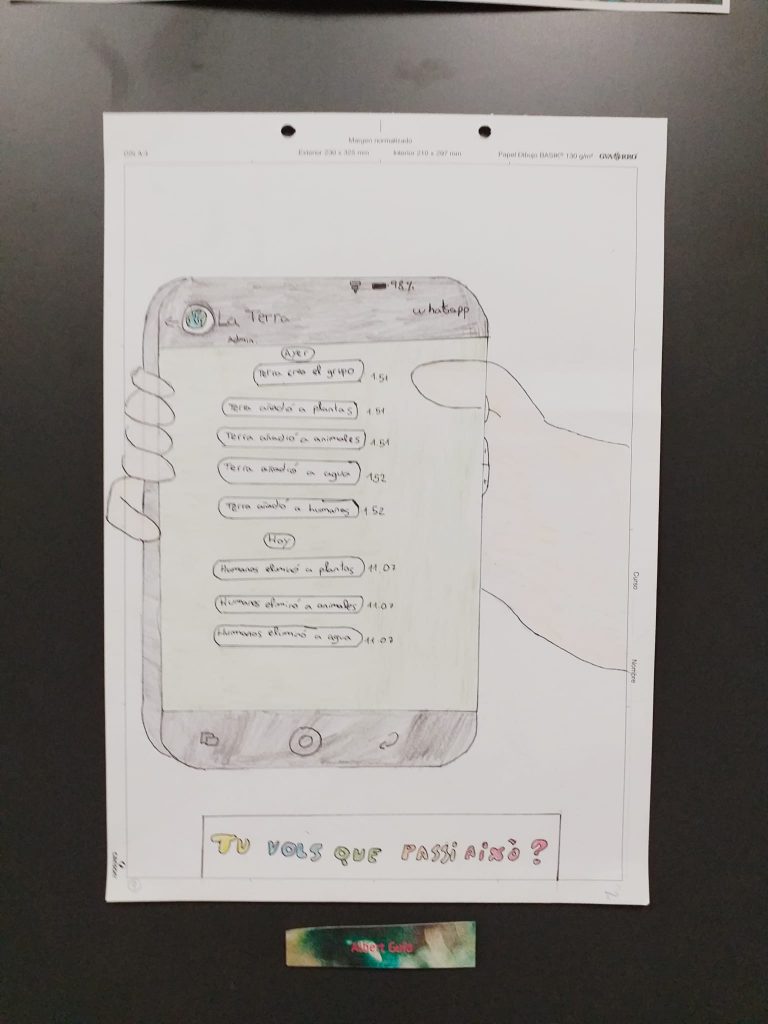 Margen normalizado
DIN A4 Exterior 230 x 325 mm Interior 210 x 297 mm Papel Dibujo BASIK® 130 g/m² GVARRO
98%
La Terra
whatsapp
Admin
Ayer
Terra creo el grupo 1.51
Terra añadió a plantas 1.51
Terra añadió a animales 1.51
Terra añadió a agua 1.52
Terra añadió a humanos 1.52
Hoy
Humanos eliminó a plantas 11.07
Humanos eliminó a animales 11.07
Humanos eliminó a agua 11.07
Curso
Nombre
TU VOLS QUE PASSI AIXÒ?
CANSON
2
Albert Guia